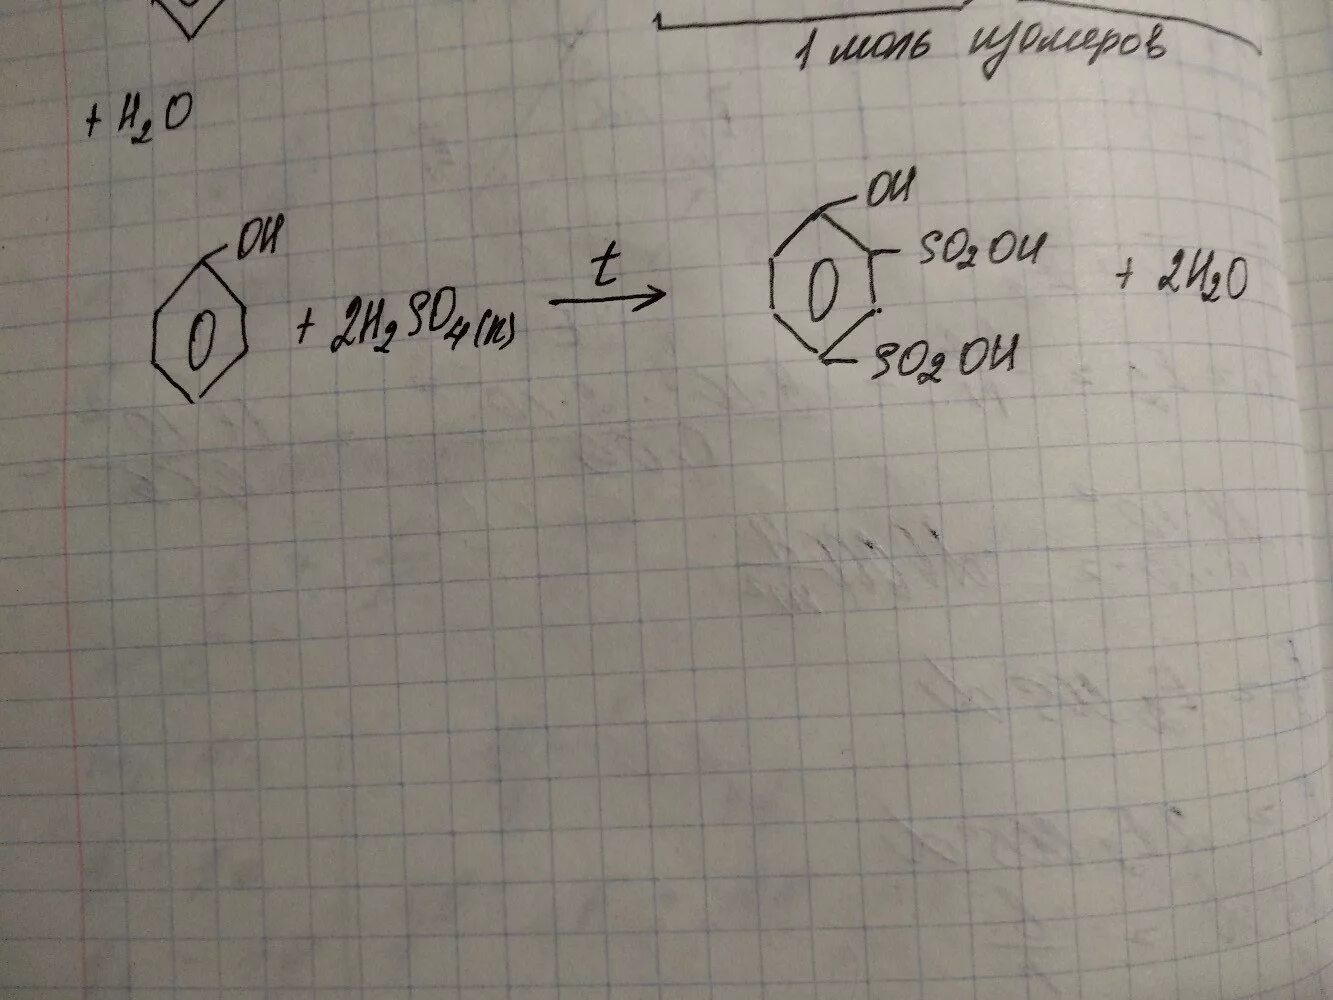 1 моль изомеров
+ H₂O
OH + 2H₂SO₄(к) t → OH SO₂OH SO₂OH + 2H₂O